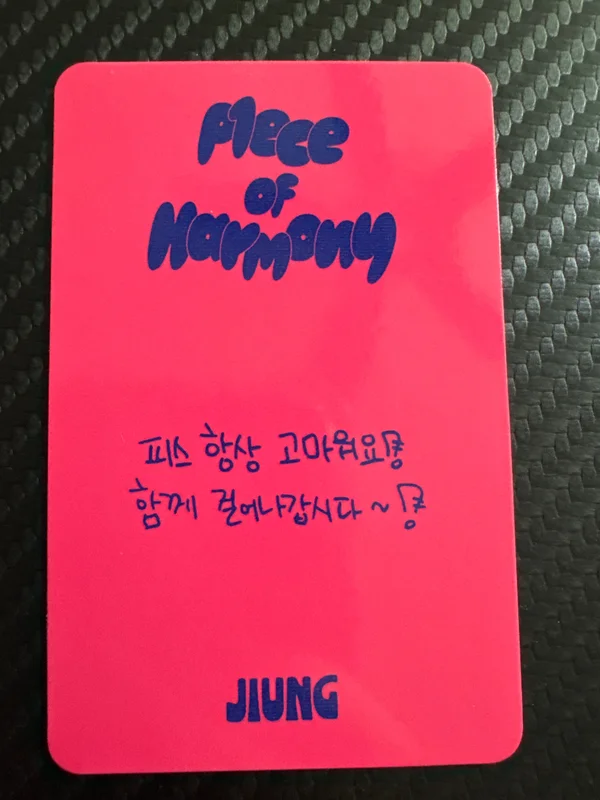 Piece
OF
Harmony
피스 항상 고마워요
함께 걸어나갑시다~
JIUNG